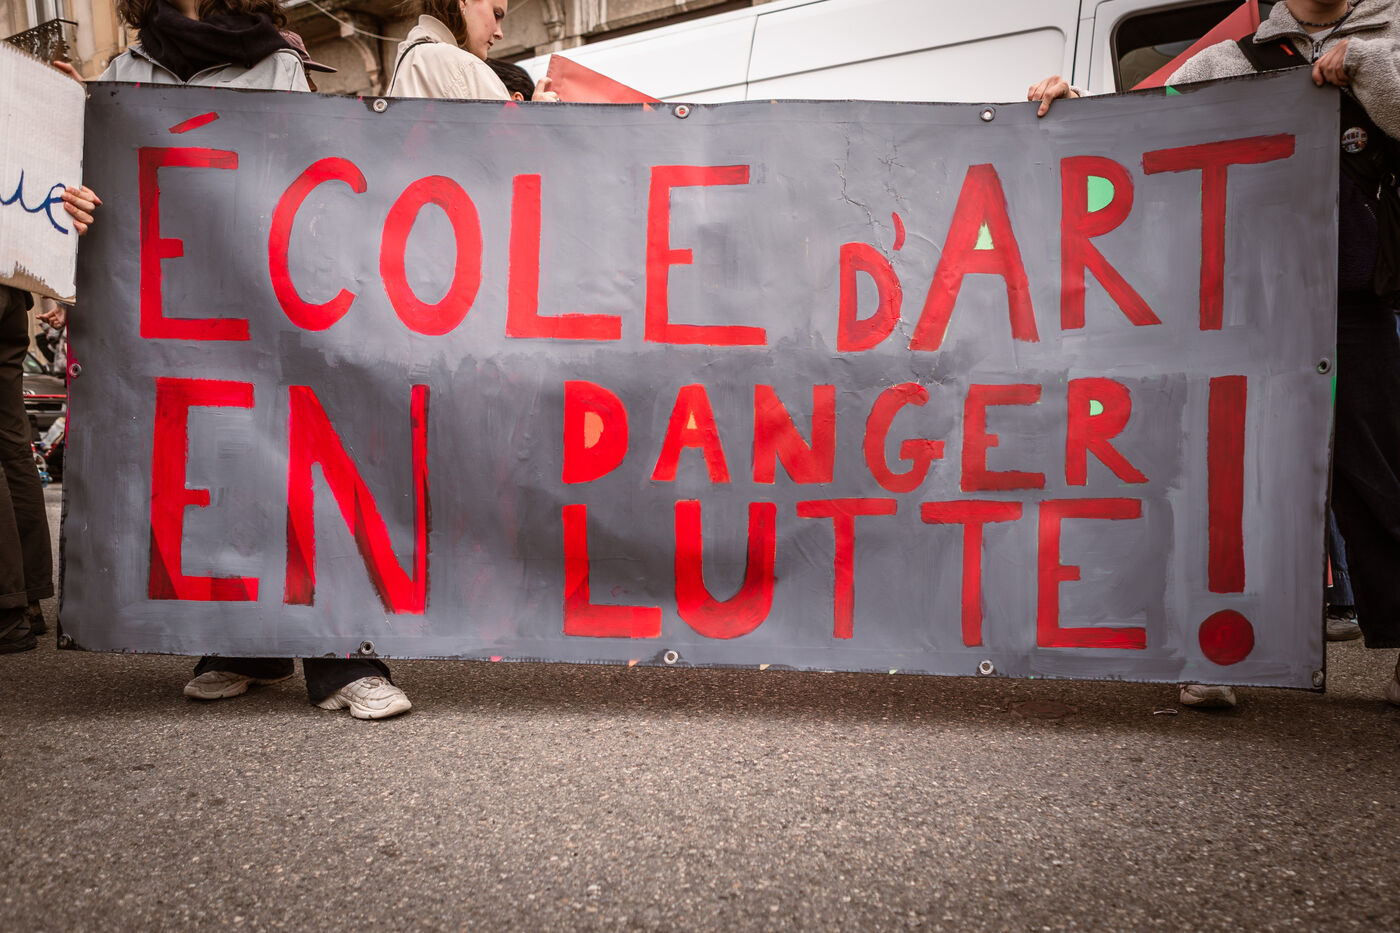 ÉCOLE D'ART
EN DANGER
LUTTE !